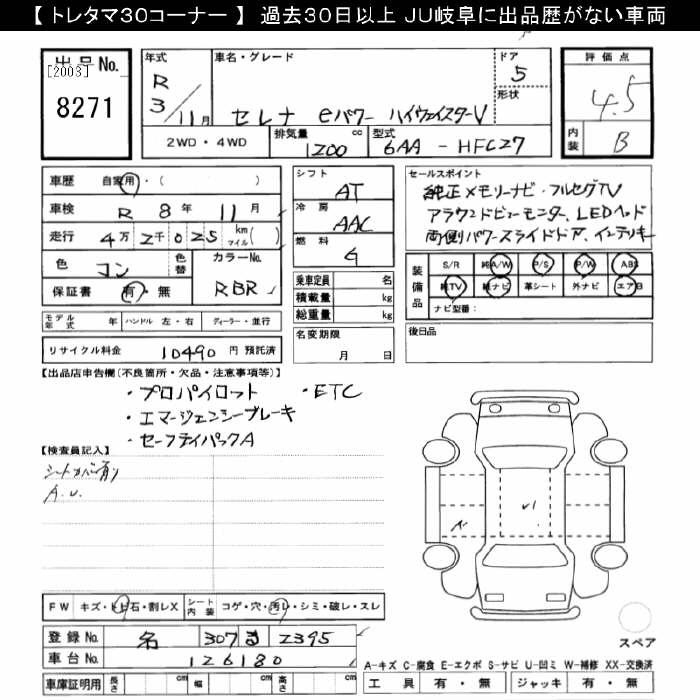 【トレタマ30コーナー】 過去30日以上 JU岐阜に出品歴がない車両
出品No.
[2003]
8271
年式
R
3/11月
車名・グレード
セレナ eパワー ハイウェイスターV
ドア
5
形状
評価点
4.5
内装
B
2WD・4WD
排気量
1200 cc
型式
6AA-HFC27
車歴 自家用・( )
車検 R 8年 11月
走行 4万 2千 025 km マイル( )
色 コン 色替
カラーNo.
RBR
保証書 有・無
シフト
AT
冷房
AAC
燃料
G
乗車定員 名
積載量 kg
総重量 kg
名変期限
月 日
セールスポイント
純正メモリーナビ・フルセグTV
アラウンドビューモニター、LEDヘッド
両側パワースライドドア、インテリキー
装備品
S/R 純A/W P/S P/W ABS
純TV 純ナビ 革シート 外ナビ エアB
ナビ型番:
モデル年式 年 ハンドル 左・右 ディーラー・並行
後日品
リサイクル料金 10490 円 預託済
【出品店申告欄(不良箇所・欠品・注意事項等)】
・プロパイロット ・ETC
・エマージェンシーブレーキ
・セーフティパックA
【検査員記入】
シートカバー有り
A.U.
A
U1
FW キズ・トビ石・割レX シート内装 コゲ・穴・汚レ・シミ・破レ・スレ
登録No. 名 307 ま 2395
車台No. 126180
車庫証明用 長さ cm 幅 cm 高さ cm
スペア
A-キズ C-腐食 E-エクボ S-サビ U-凹ミ W-補修 XX-交換済
工具 有・無 ジャッキ 有・無